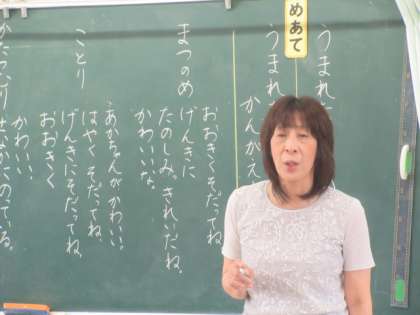 めあて
うまれ
うまれ
かんがえ
まつのめ
おおきくそだってね
げんきに
たのしみ。きれいだね、
かわいいな。
ことり
あかちゃんがかわいい。
はやくそだってね、
げんきにそだってね
おおきく
かわいい、
かたつむり
せなかにのっている。